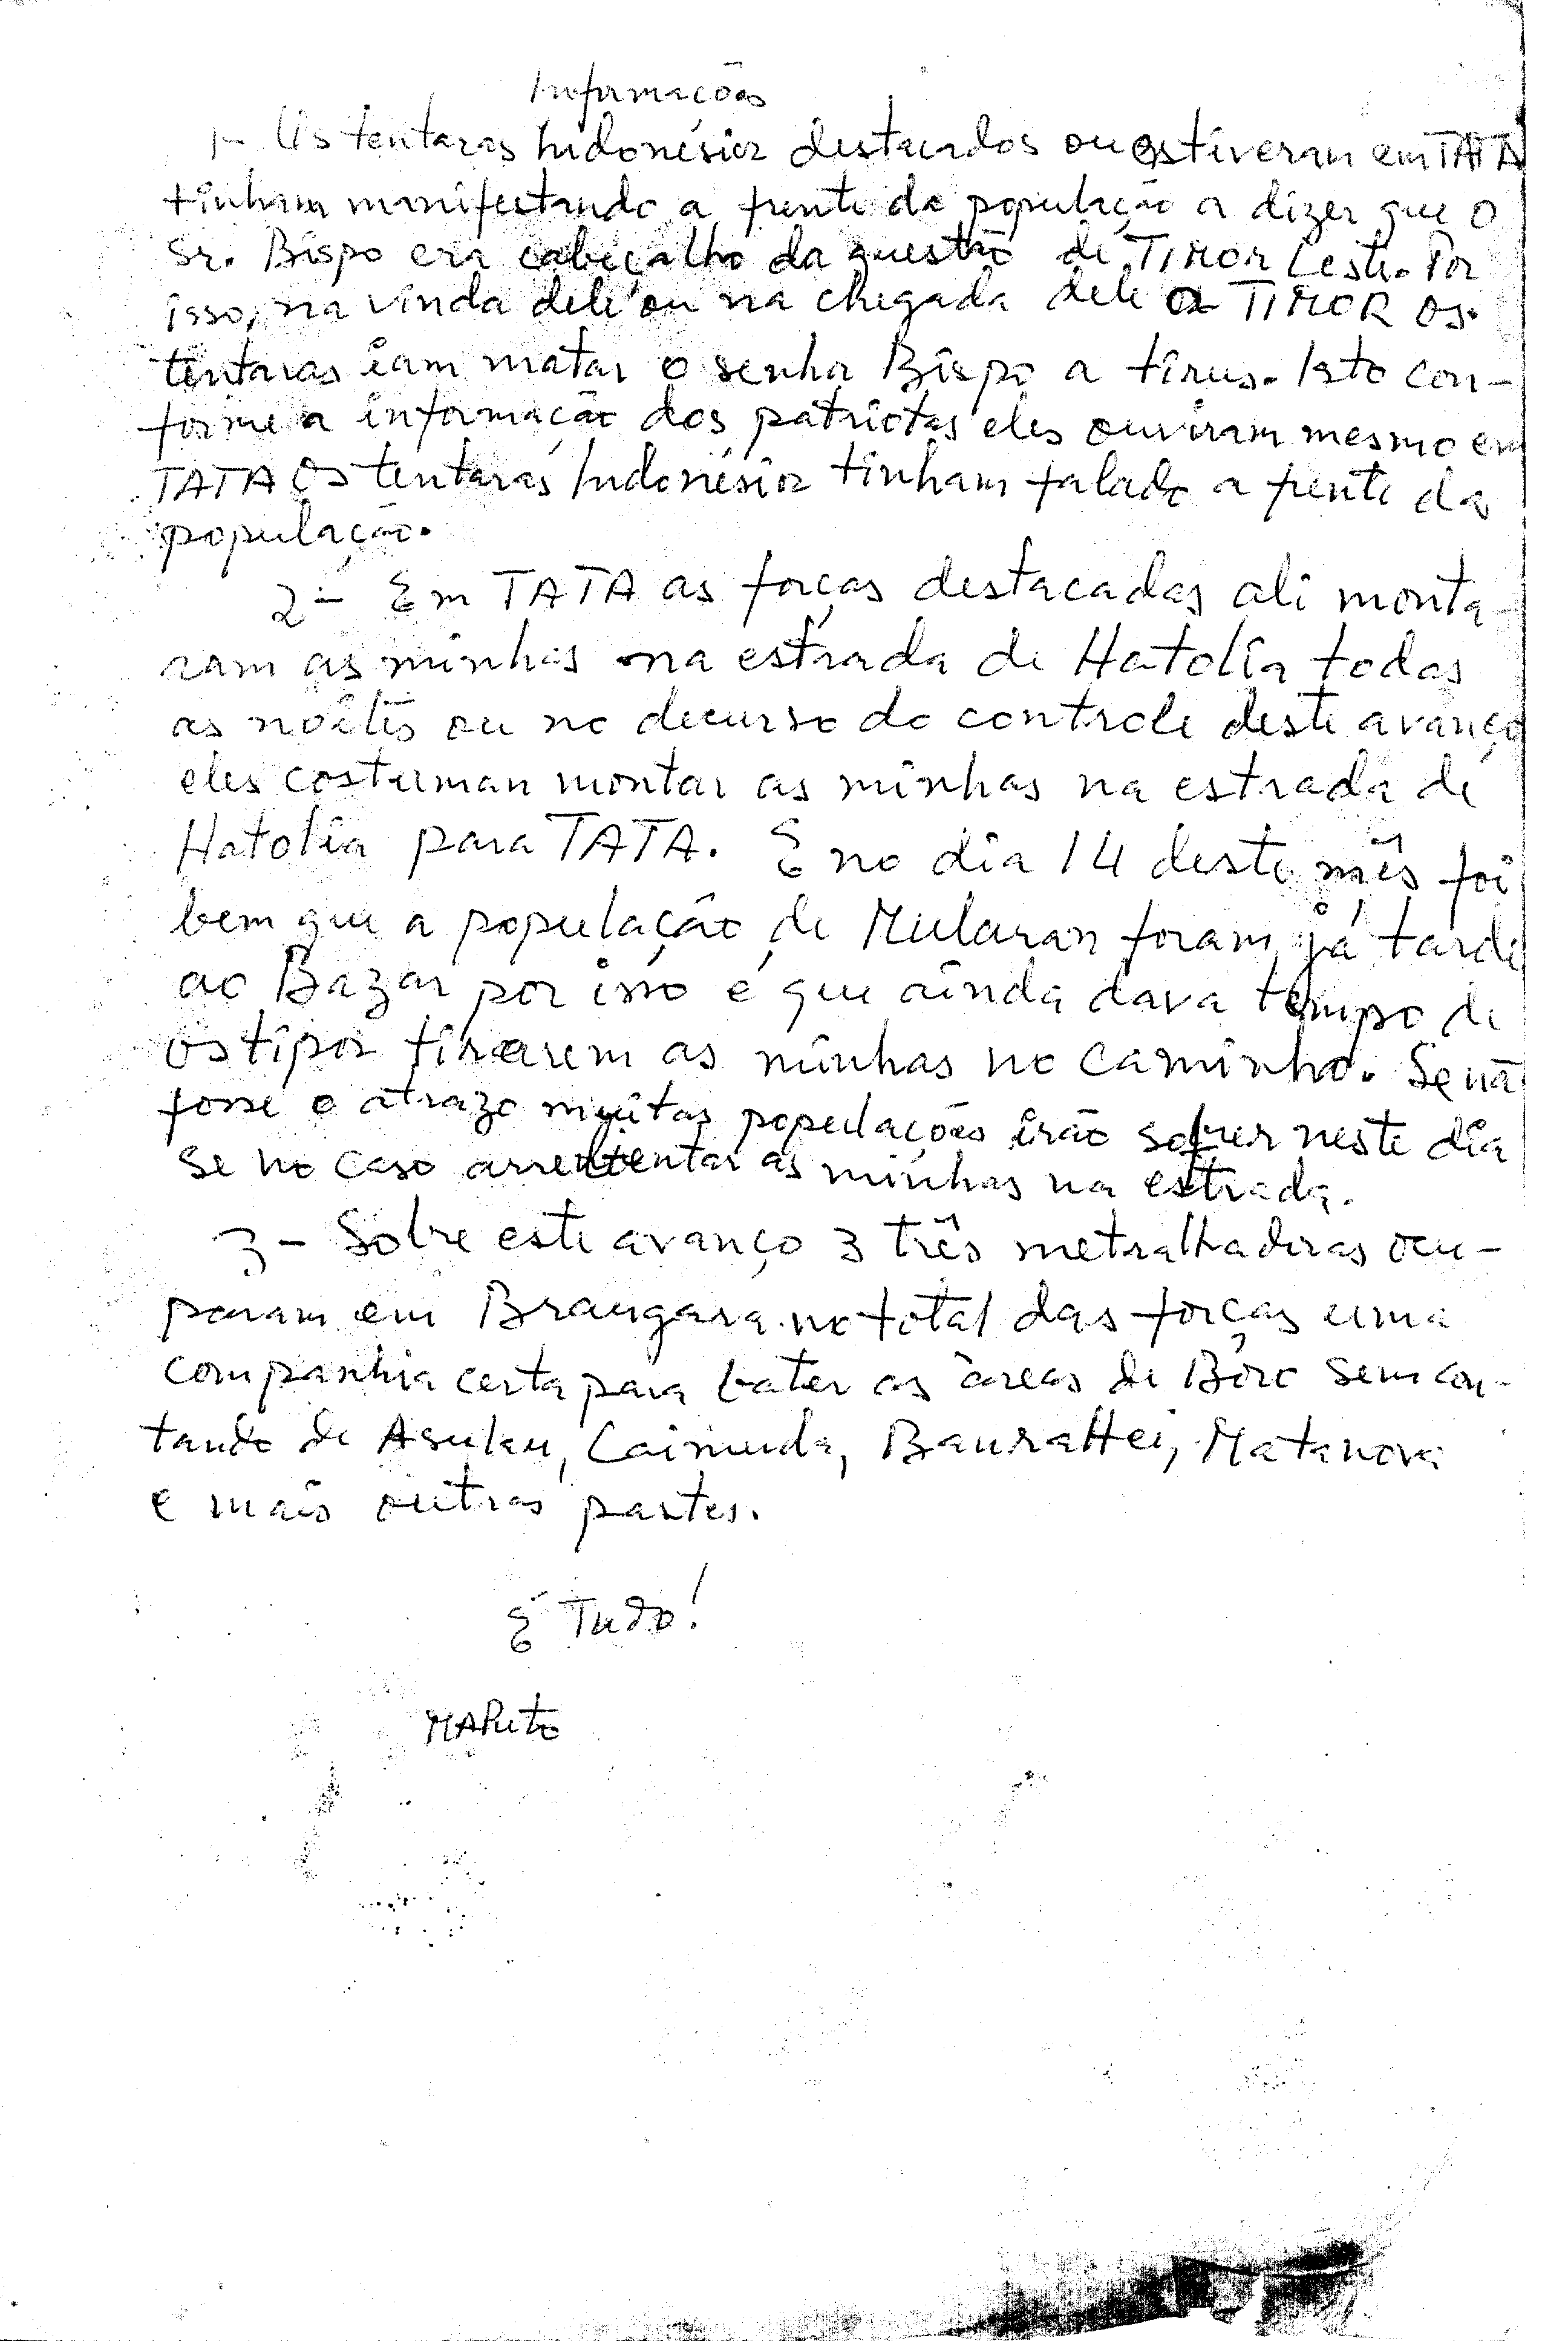 Informações
1- Os tentaras Indonésios destacados ou estiveram em TATA
tinham manifestando a frente da população a dizer que o
Sr. Bispo era cabeçalho da questão de TIMOR Leste. Por
isso, na vinda dele ou na chegada dele a TIMOR os
tentaras iam matar o senhor Bispo a tirus. Isto con-
forme a informação dos patriotas eles ouviram mesmo em
TATA Os tentaras Indonésios tinham falado a frente da
população.
2- Em TATA as forças destacadas ali monta-
ram as minhas na estrada de Hatolia todas
as noites ou no decurso do controle deste avanço
eles costuman montar as minhas na estrada de
Hatolia para TATA. E no dia 14 deste mês foi
bem que a população de Mularan foram já tarde
ao Bazar por isso é que ainda dava tempo de
os tipos tirarem as minhas no caminho. Se nã
fosse o atrazo muitas populações irão sofrer neste dia
se no caso arrebentar as minhas na estrada.
3- Sobre este avanço 3 três metralhadoras ocu-
param em Braugara no total das forças uma
companhia certa para bater as áreas de Boro sem con-
tando de Asulau, Caimuda, Baurattei, Matanova
e mais outras partes.
É Tudo!
MAPuto